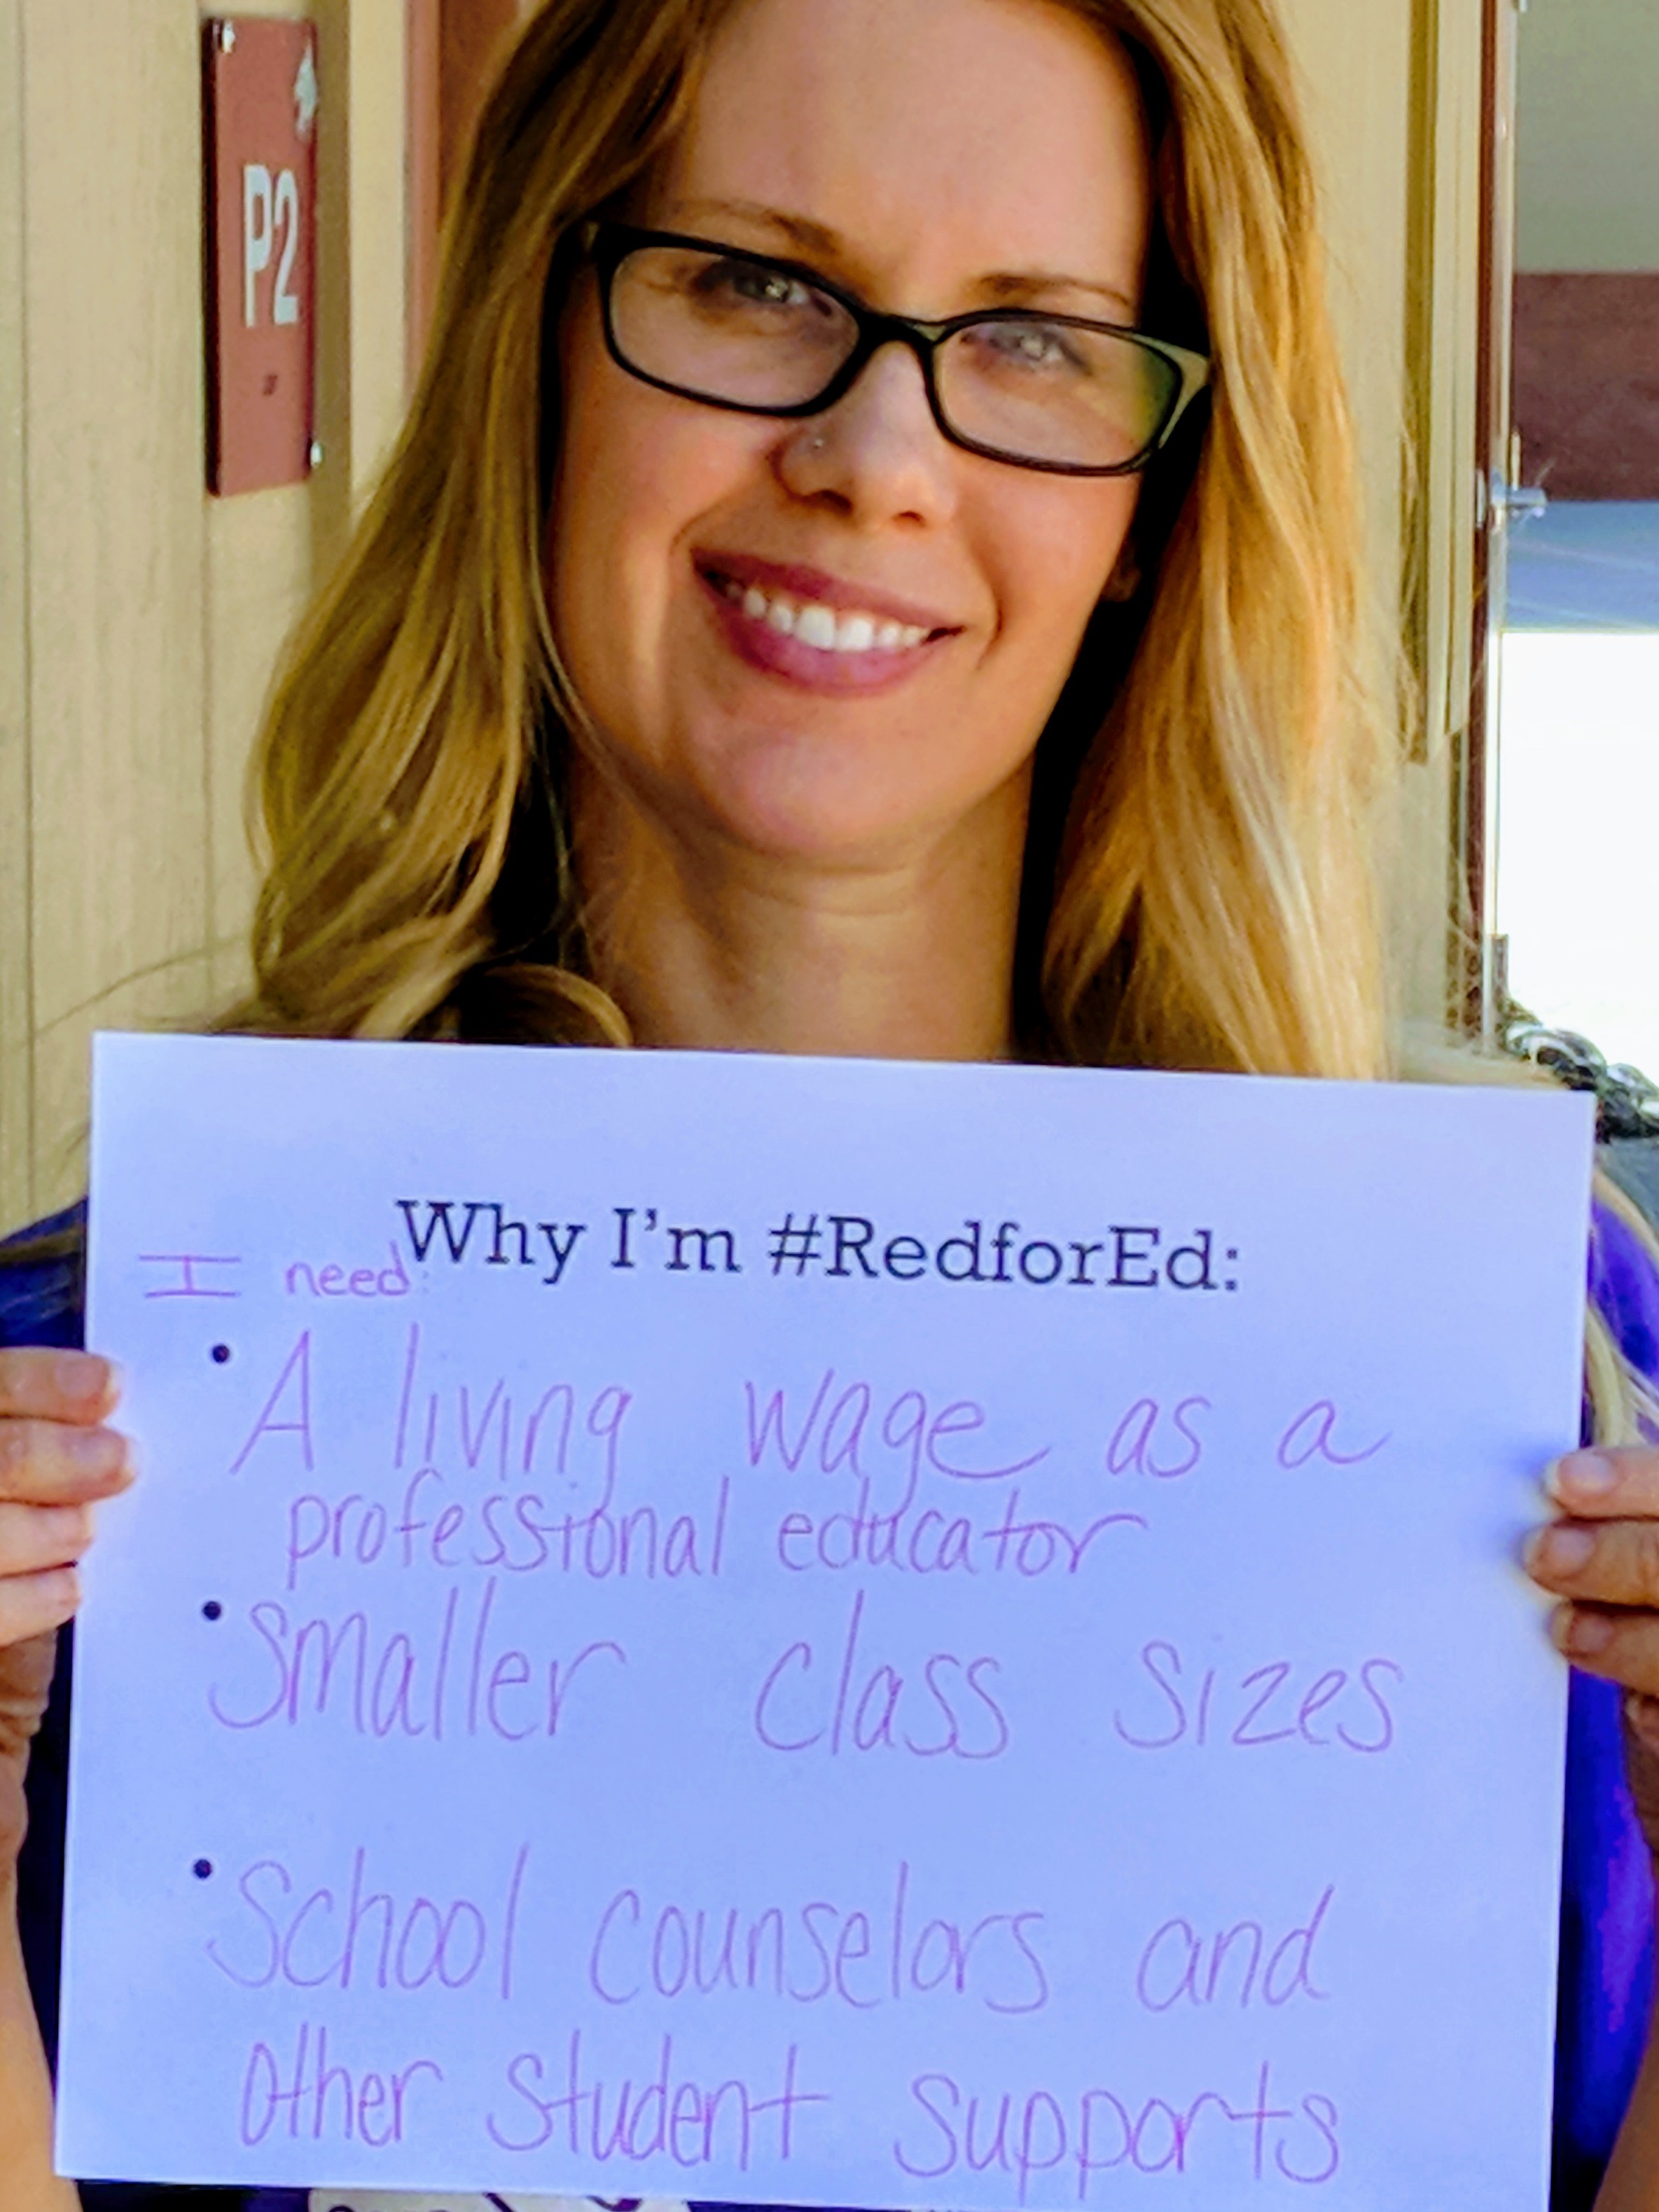 P2
Why I'm #RedforEd:
I need:
• A living wage as a
professional educator
• Smaller class sizes
• School counselors and
other student supports